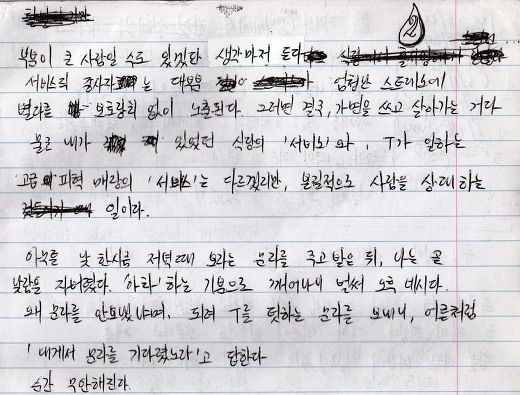 2
부분이 큰 사람일 수도 있겠다 생각마저 든다
서비스직 종사자 는 대부분 엄청난 스트레스에
별다른 보호장치 없이 노출된다. 그러면 결국, 가면을 쓰고 살아가는 거다
물론 내가 있었던 식당의 '서비스'와, T가 일하는
고급 피력 매장의 '서비스'는 다르겠지만, 본질적으로 사람을 상대하는
일이라.
아웃를 낮 한시쯤 저녁때 보라는 문자를 주고 받은 뒤, 나는 곧
낮잠을 자버렸다. '아차' 하는 기분으로 깨어나니 벌써 오후 네시다.
왜 문자를 안보냈냐며, 되려 T를 탓하는 문자를 보내니, 어른처럼
'내게서 문자를 기다렸노라'고 답한다
순간 무안해진다.